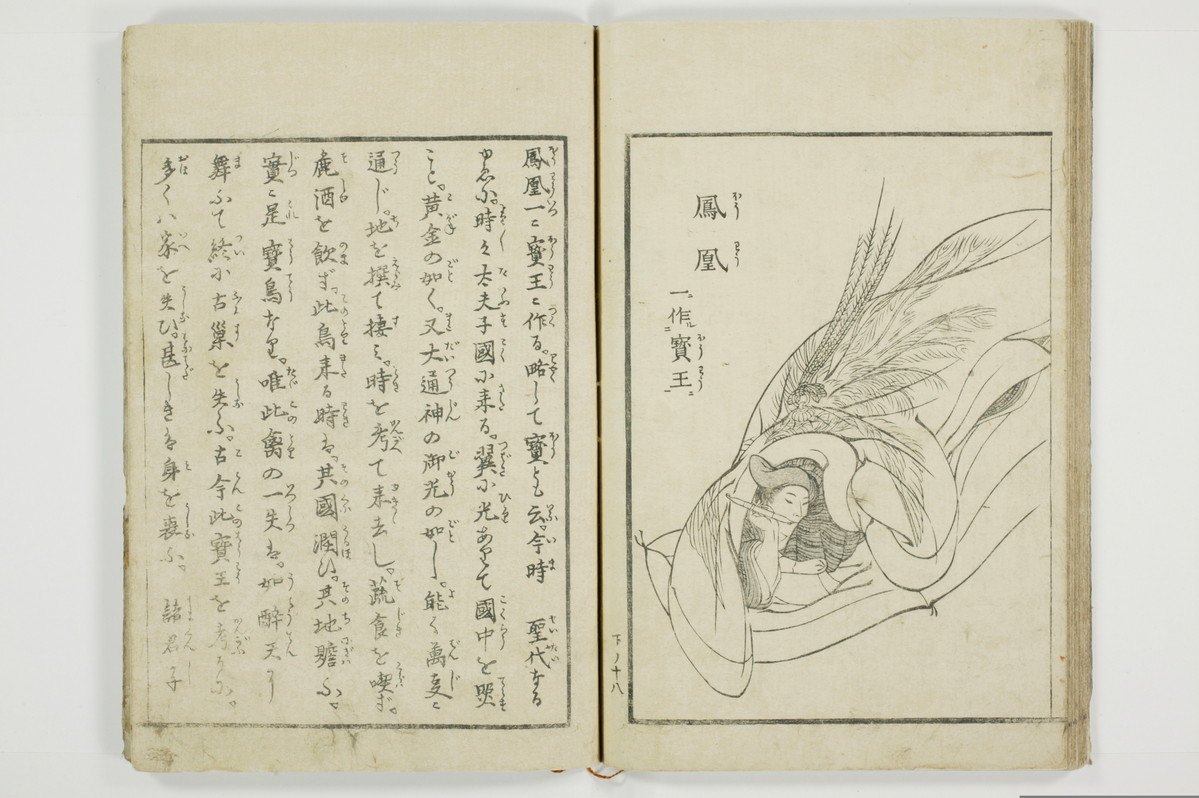 鳳凰
一作寳王
下ノ十八
鳳凰一ニ寳王ニ作る。略して寳とも云。今時 聖代なる
ゆゑに。時々太夫子國に来る。翼に光ありて國中を照
こと。黄金の如く。又大通神の御光の如し。能く萬変ニ
通じ。地を撰て棲ミ。時を考て来去し。蔬食を喫ず。
麁酒を飲ず。此鳥来る時は。其國潤ひ。其地贍ふ。
實ニ是寳鳥なり。唯此禽の一失は。如酔天より
舞ふて終に古巣を失ふ。古今此寳王を考るに。
多くハ家を失ひ。甚しきは身を喪ふ。 諸君子